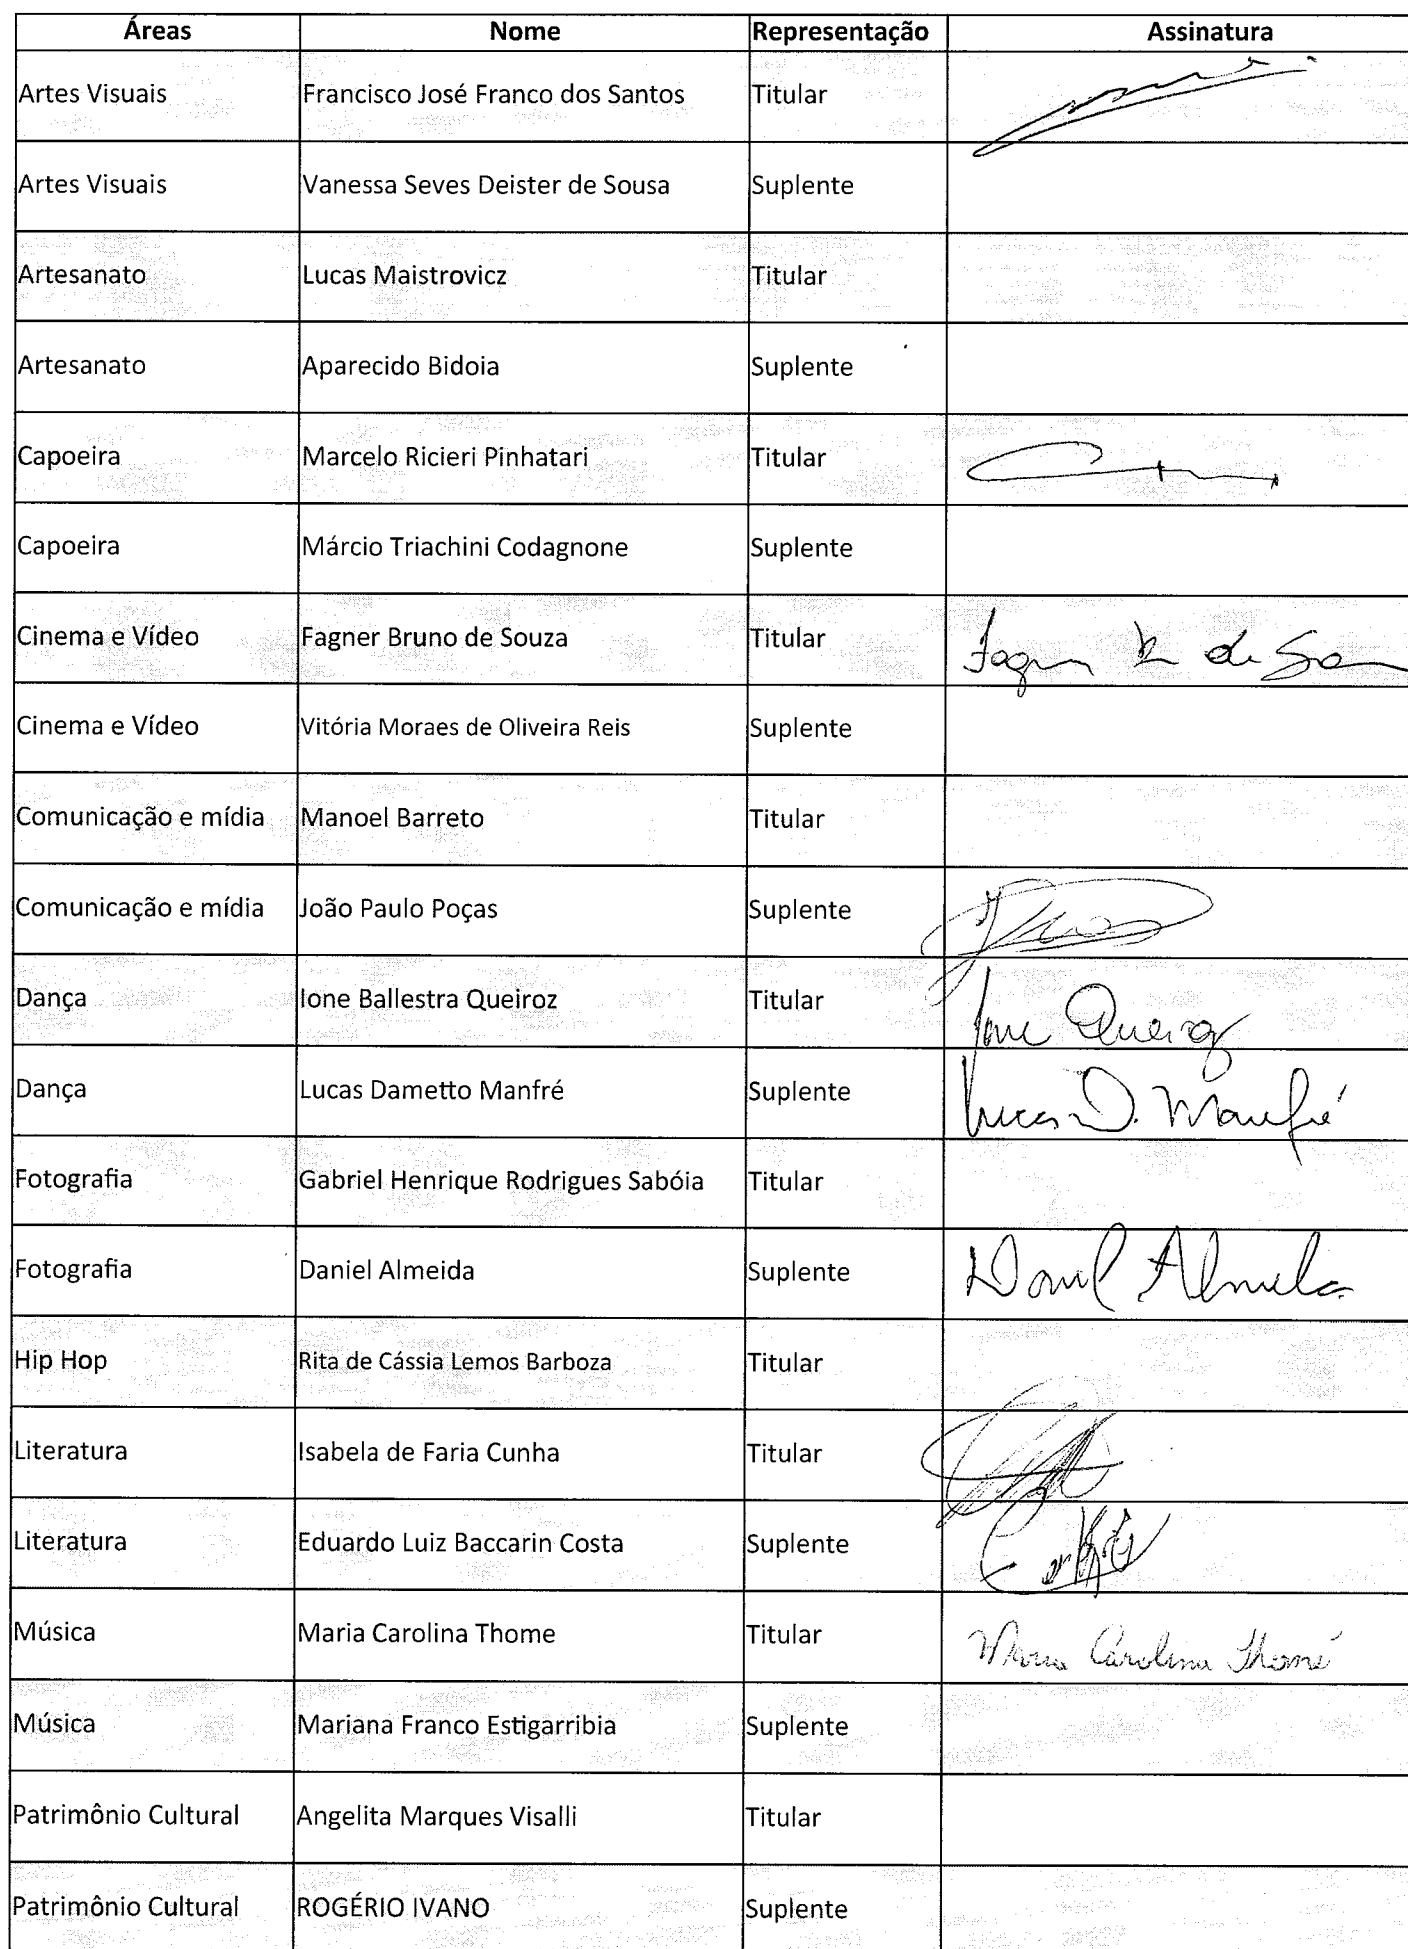 Áreas Nome Representação Assinatura
Artes Visuais Francisco José Franco dos Santos Titular
Artes Visuais Vanessa Seves Deister de Sousa Suplente
Artesanato Lucas Maistrovicz Titular
Artesanato Aparecido Bidoia Suplente
Capoeira Marcelo Ricieri Pinhatari Titular
Capoeira Márcio Triachini Codagnone Suplente
Cinema e Vídeo Fagner Bruno de Souza Titular Fagner B de
Cinema e Vídeo Vitória Moraes de Oliveira Reis Suplente
Comunicação e mídia Manoel Barreto Titular
Comunicação e mídia João Paulo Poças Suplente
Dança Ione Ballestra Queiroz Titular Ione Queiroz
Dança Lucas Dametto Manfré Suplente Lucas D. Manfré
Fotografia Gabriel Henrique Rodrigues Sabóia Titular
Fotografia Daniel Almeida Suplente Daniel Almeida
Hip Hop Rita de Cássia Lemos Barboza Titular
Literatura Isabela de Faria Cunha Titular
Literatura Eduardo Luiz Baccarin Costa Suplente
Música Maria Carolina Thome Titular Maria Carolina Thomé
Música Mariana Franco Estigarribia Suplente
Patrimônio Cultural Angelita Marques Visalli Titular
Patrimônio Cultural ROGÉRIO IVANO Suplente